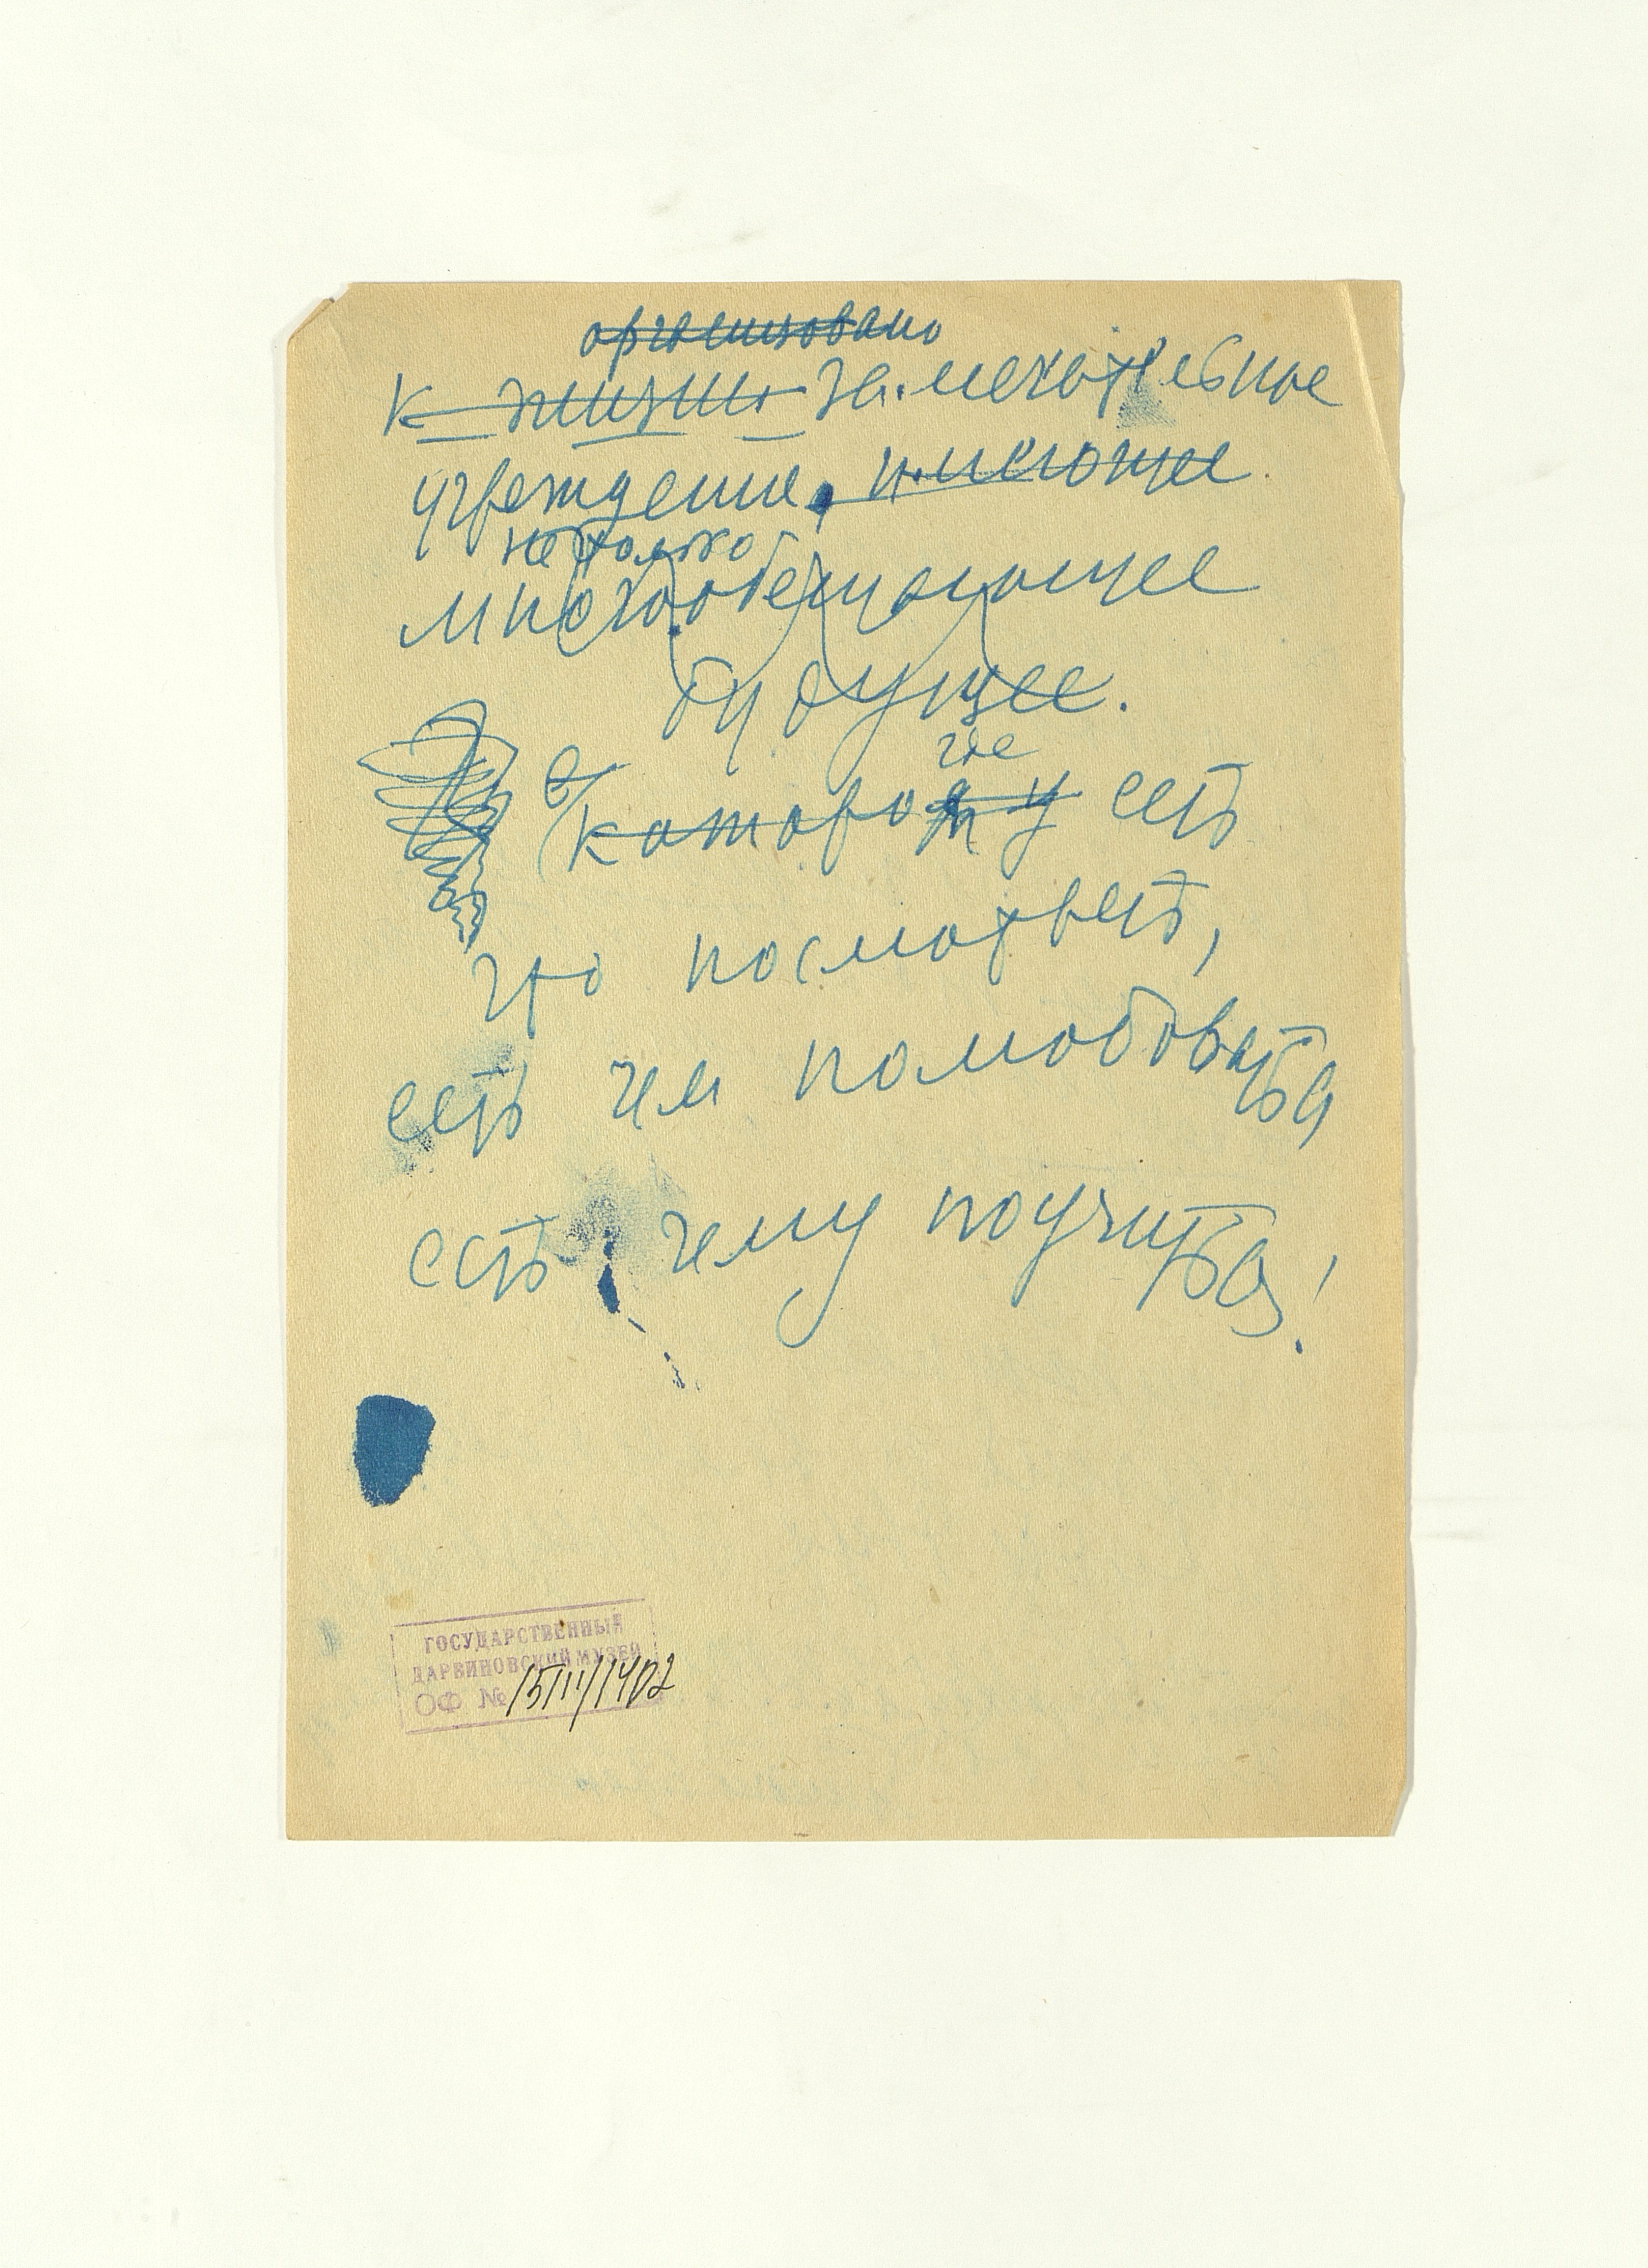 организовано
к жизни замечательное
учреждение, имеющее
не только
многообещающее
будущее.
где
которому есть
что посмотреть,
есть чем полюбоваться
есть чему поучиться!
ГОСУДАРСТВЕННЫЙ
ДАРВИНОВСКИЙ МУЗЕЙ
ОФ №